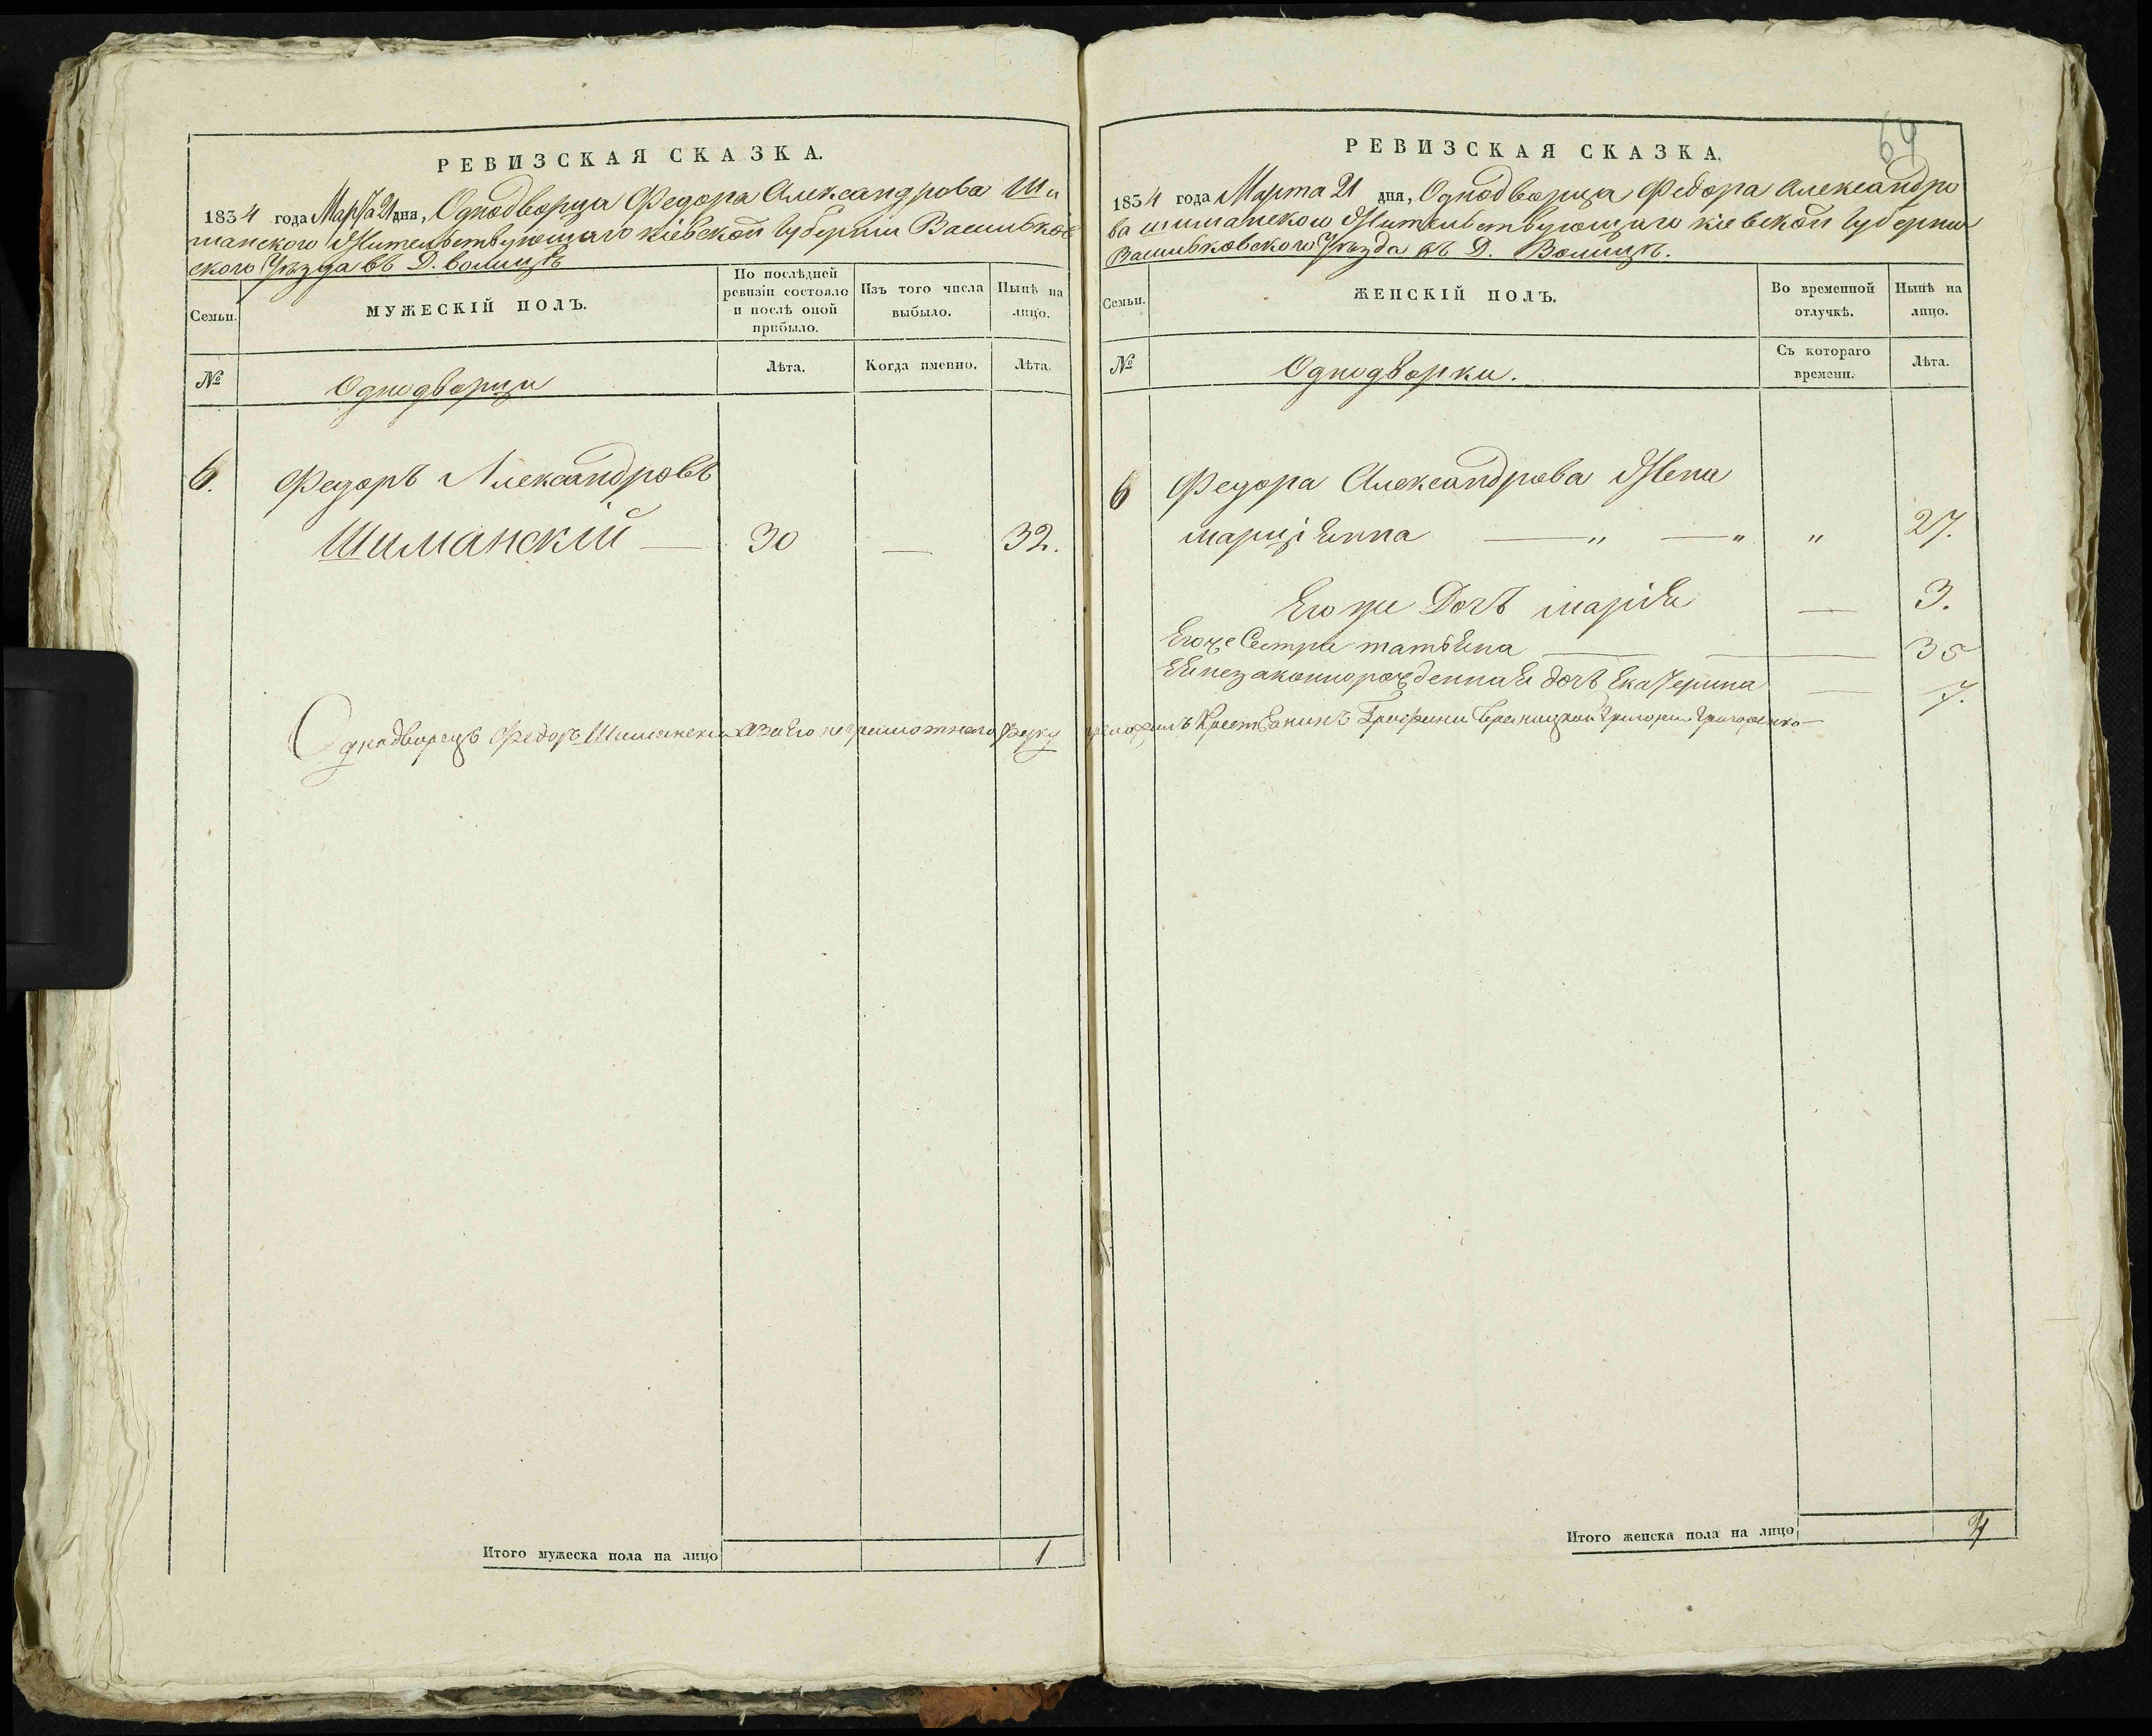 РЕВИЗСКАЯ СКАЗКА.
1834 года Марта 21 дня, Однодворца Федора Александрова Ши
манского Жительствующаго Кіевской Губерніи Васильков
ского Уѣзда въ Д. Волицѣ
Семьи.
МУЖЕСКІЙ ПОЛЪ.
По послѣдней
ревизіи состояло
и послѣ оной
прибыло.
Изъ того числа
выбыло.
Нынѣ на
лицо.
№
Однодворци
Лѣта.
Когда именно.
Лѣта.
6. Федоръ Александровъ
Шиманскій — 30 — 32.
Итого мужеска пола на лицо 1
64
РЕВИЗСКАЯ СКАЗКА.
1834 года Марта 21 дня, Однодворца Федора Александро
ва Шиманского Жительствующаго Кіевской Губерніи
Васильковского Уѣзда въ Д. Волицѣ.
Семьи.
ЖЕНСКІЙ ПОЛЪ.
Во временной
отлучкѣ.
Нынѣ на
лицо.
№
Однодворки.
Съ котораго
времени.
Лѣта.
6 Федора Александрова Жена
Марціянна — " — " " 27.
Его же Дочъ Марія — 3.
Его же Сестра Татьяна — — 35
Ея незаконнорожденная дочъ Екатерина — 7.
Однодворецъ Федоръ Шиманскій а за Его неграмотного руку приложилъ Крестьянинъ Графини Браницкой Григорій Григоренко
Итого женска пола на лицо 4